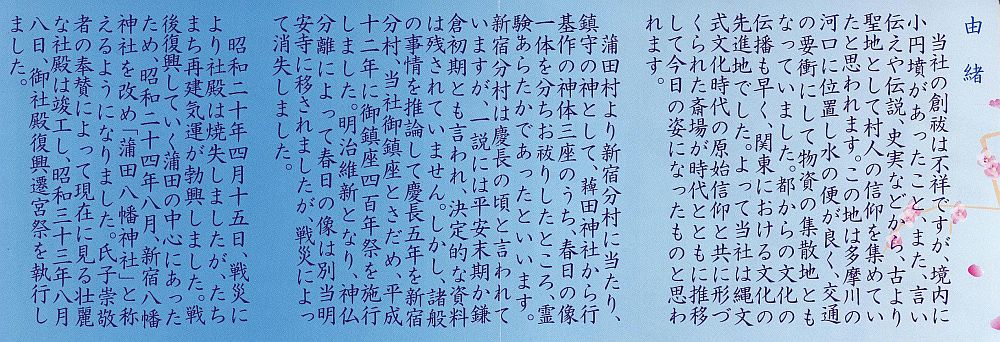 由緒
当社の創祓は不祥ですが、境内に
小円墳があったこととまた、言い
伝えや伝説、史実などから、古より
聖地として村人の信仰を集めてい
たと思われます。この地は多摩川の
河口に位置し水の便が良く、交通
の要衝にして物資の集散地とも
なっていました。都からの文化の
伝播も早く、関東における文化の
先進地でした。よって当社は縄文
式文化時代の原始信仰と共に形づ
くられた斎場が時代とともに推移
して今日の姿になったものと思わ
れます。
蒲田村より新宿分村に当たり、
鎮守の神として、薭田神社から行
基作の神体三座のうち、春日の像
一体を分ちお祓りしたところ、霊
験あらたかであったといいます。
新宿分村は慶長の頃と言われて
いますが、一説には平安末期か鎌
倉初期とも言われ、決定的な資料
は残されていません。しかし、諸般
の事情を推論して慶長五年を新宿
分村、当社御鎮座とさだめ、平成
十二年に御鎮座四百年祭を施行
しました。明治維新となり、神仏
分離によって春日の像は別当明
安寺に移されましたが、戦災によっ
て消失しました。
昭和二十年四月十五日、戦災に
より社殿は焼失しましたが、たち
まち再建気運が勃興しました。戦
後復興していく蒲田の中心にあった
ため、昭和二十四年八月、新宿八幡
神社を改め「蒲田八幡神社」と称
えるようになりました。氏子崇敬
者の奉賛によって現在に見る壮麗
な社殿は竣工し、昭和三十三年八月
八日、御社殿復興遷宮祭を執行し
ました。